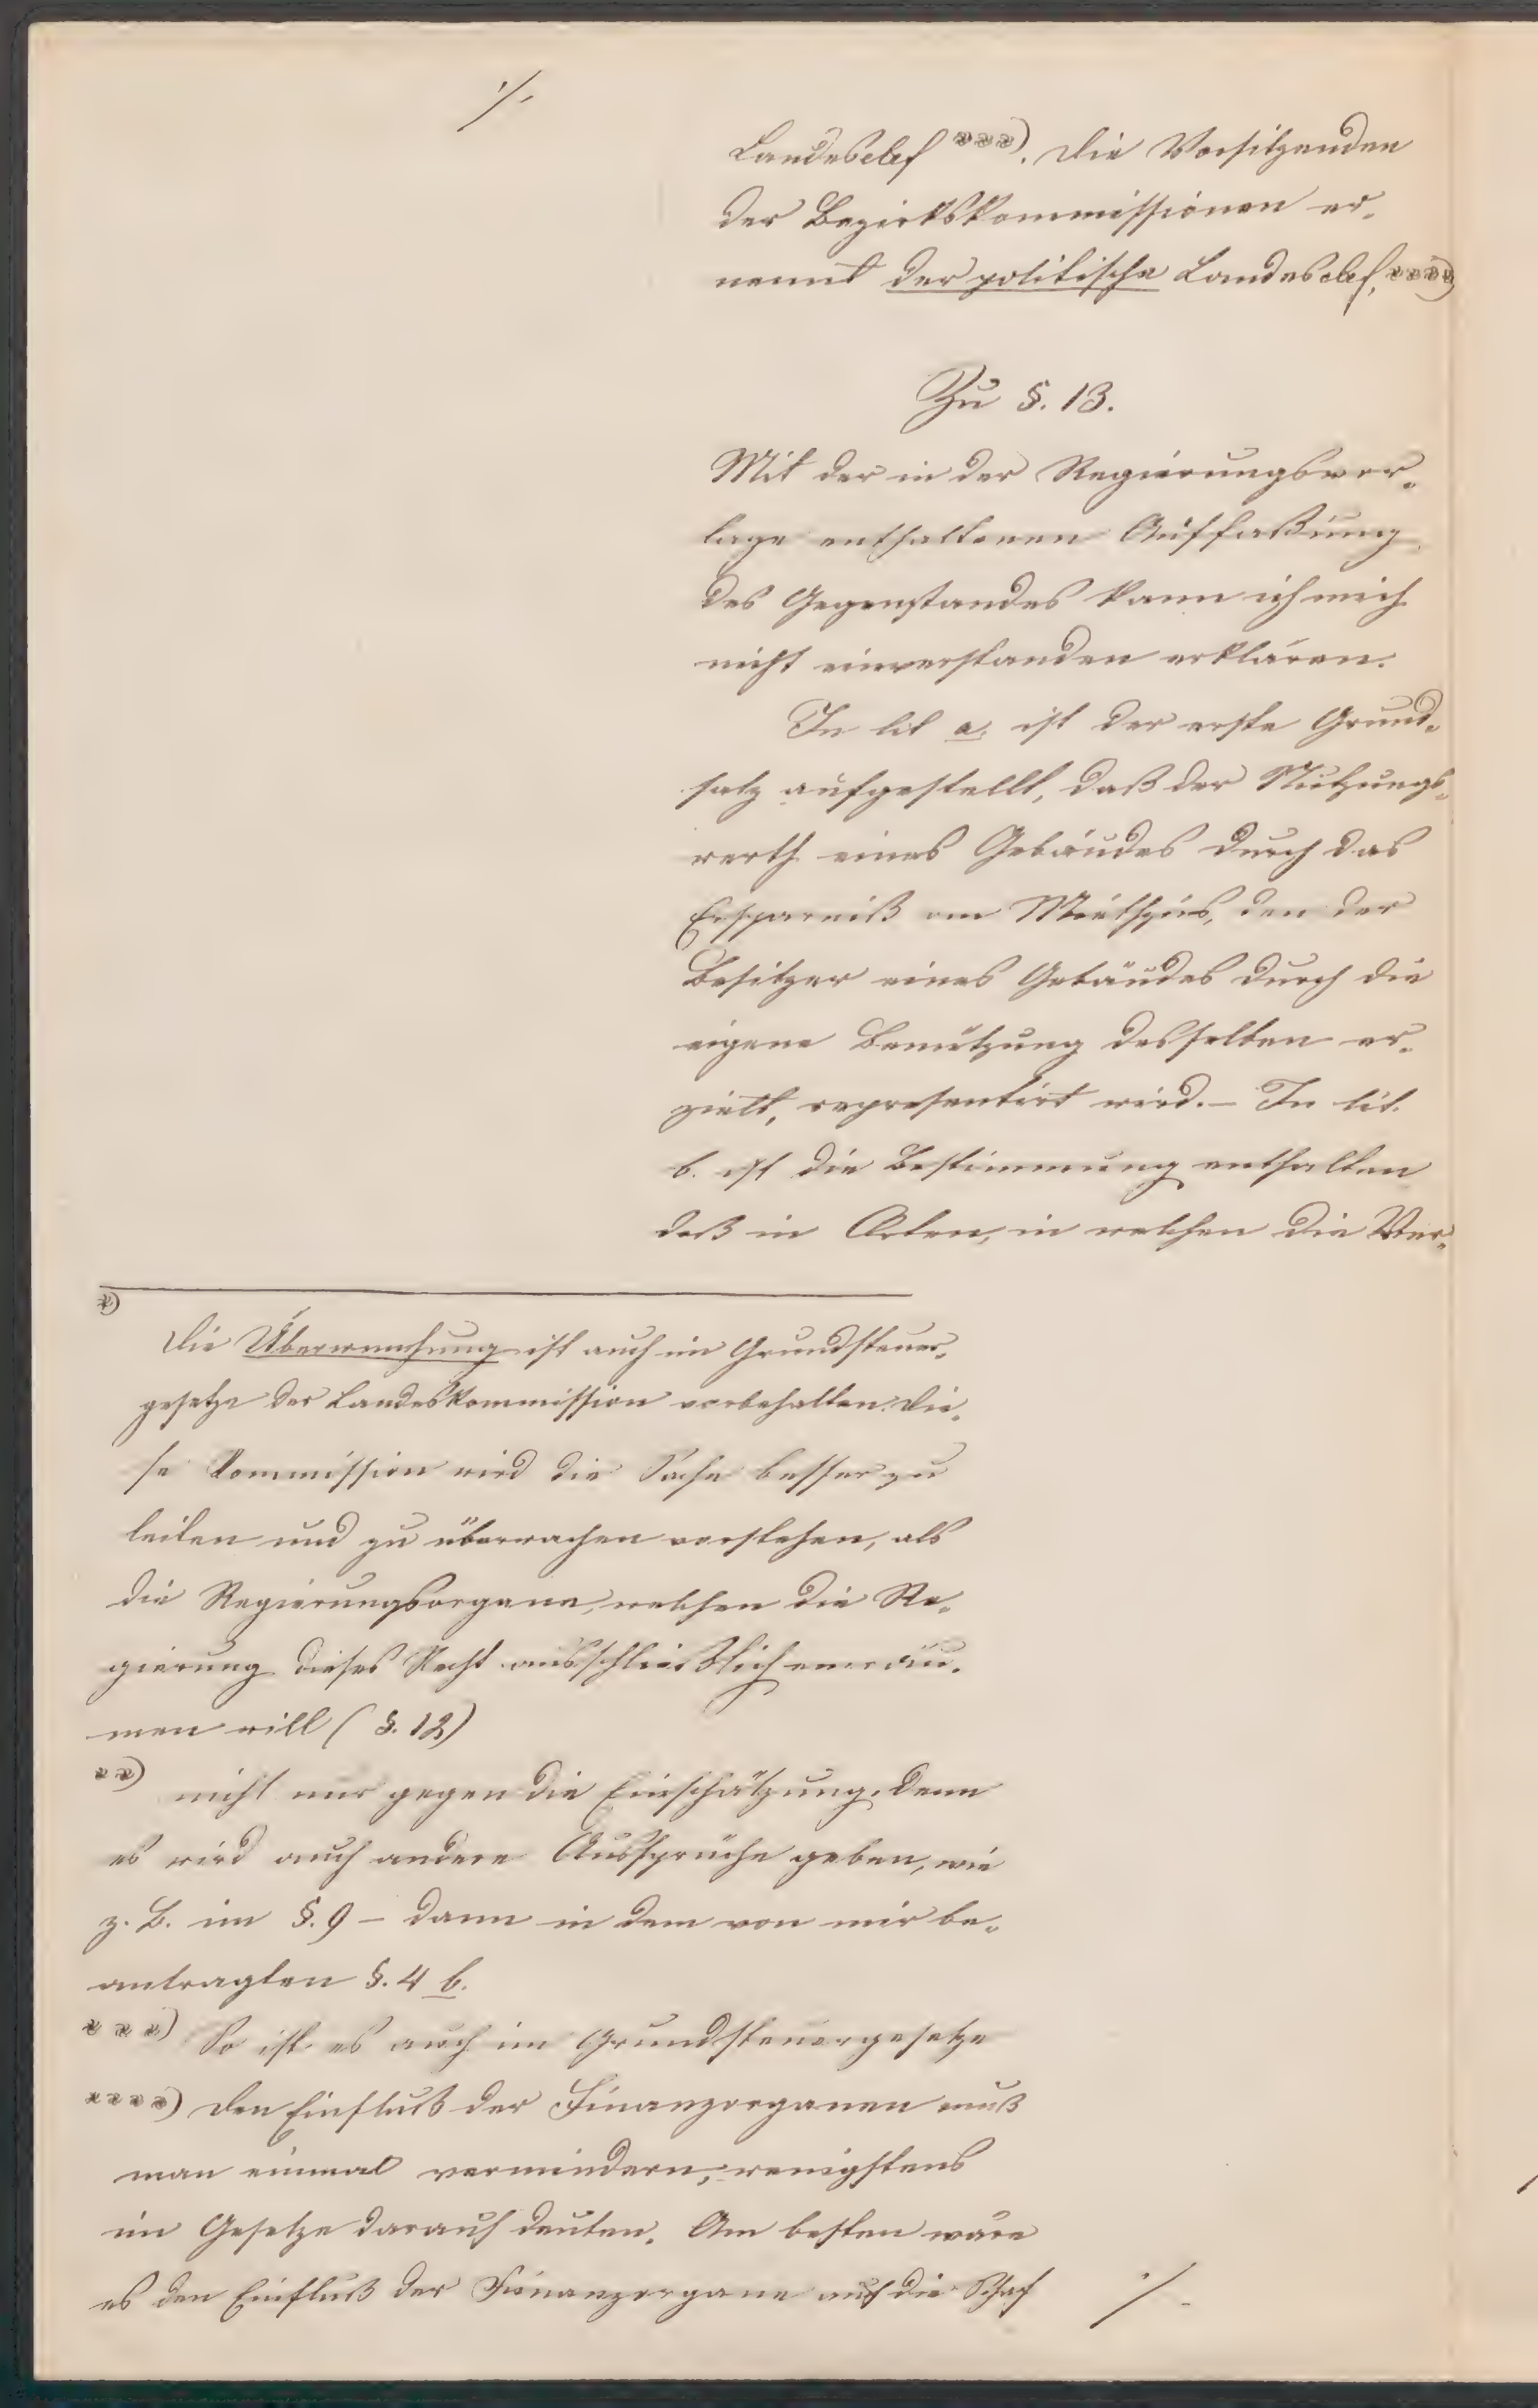 ./.
Landeschef ***). Die Vorsitzenden
der Bezirkskommissionen er„
nennt der politische Landeschef. ****)
Zu §. 13.
Mit der in der Regierungsvor„
lage enthaltenen Auffaßung
des Gegenstandes kann ich mich
nicht einverstanden erklären.
In lit a. ist der erste Grund„
satz aufgestellt, daß der Nutzungs„
werth eines Gebäudes durch das
Ersparniß am Miethzins, den der
Besitzer eines Gebäudes durch die
eigene Benützung desselben er„
zielt, representirt wird. – In lit.
b. ist die Bestimmung enthalten
daß in Orten, in welchen die Ver„
*)
Die Überwachung ist auch im Grundsteuer„
gesetze der Landeskommission vorbehalten. Die„
se Kommission wird die Sache besser zu
leiten und zu überwachen verstehen, als
die Regierungsorgane, welchen die Re„
gierung dieses Recht ausschließlich einräu„
men will (§. 12)
**) nicht nur gegen die Einschätzung. Denn
es wird auch andere Aussprüche geben, wie
z. B. im §. 9 – dann in dem von mir be„
antragten §. 4 b.
***) So ist es auch im Grundsteuergesetze
****) Den Einfluß der Finanzorganen muß
man einmal vermindern, wenigstens
im Gesetze darauf deuten. Am besten wäre
es den Einfluß der Finanzorgane auf die
./.